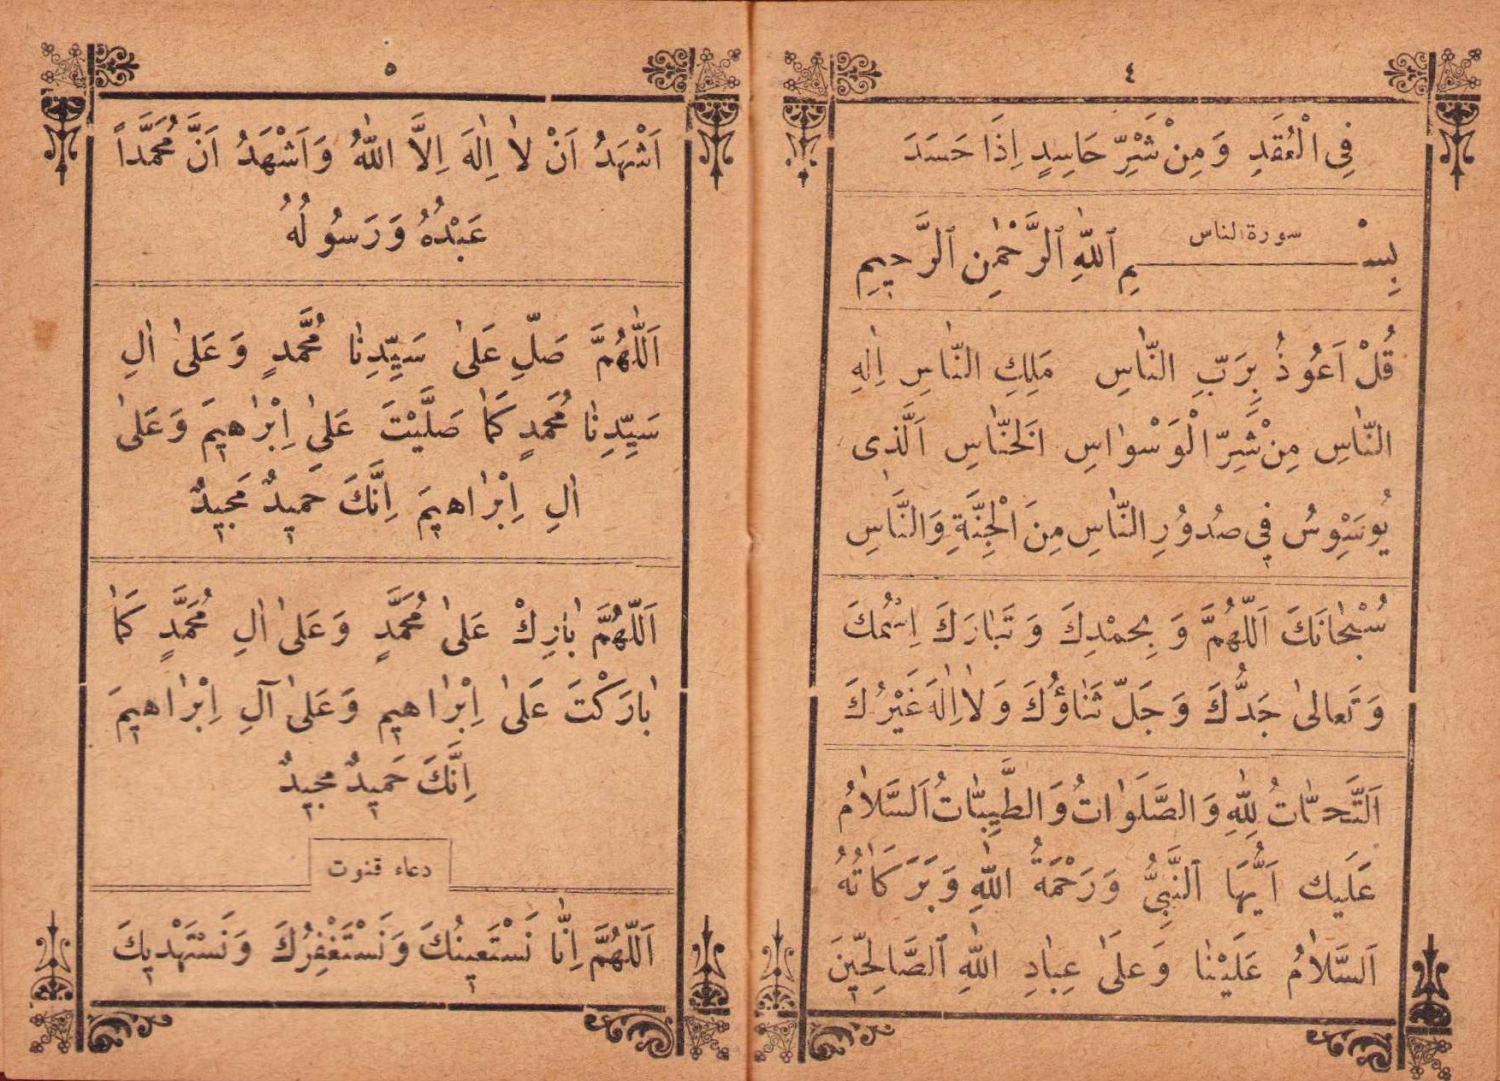 ٤
فِى الْعُقَدِ وَمِنْ شَرِّ حَاسِدٍ اِذَا حَسَدَ
سورة الناس
بِسْمِ ٱللّٰهِ ٱلرَّحْمٰنِ ٱلرَّحِيمِ
قُلْ اَعُوذُ بِرَبِّ النَّاسِ مَلِكِ النَّاسِ اِلٰهِ
النَّاسِ مِنْ شَرِّ الْوَسْوٰاسِ الْخَنَّاسِ اَلَّذِى
يُوَسْوِسُ فِى صُدُورِ النَّاسِ مِنَ الْجِنَّةِ وَالنَّاسِ
سُبْحٰانَكَ اَللّٰهُمَّ وَ بِحَمْدِكَ وَ تَبٰارَكَ اسْمُكَ
وَ تَعٰالىٰ جَدُّكَ وَ جَلَّ ثَنٰاؤُكَ وَ لاٰ اِلٰهَ غَيْرُكَ
اَلتَّحِيَّاتُ لِلّٰهِ وَ الصَّلَوٰاتُ وَ الطَّيِّبٰاتُ اَلسَّلاٰمُ
عَلَيك اَيُّهَا ٱلنَّبِىُّ وَ رَحْمَةُ اللّٰهِ وَ بَرَكَاٰتُهُ
اَلسَّلاٰمُ عَلَيْنٰا وَ عَلىَٰ عِبٰادِ اللّٰهِ ٱلصَّالِحِينَ
٥
اَشْهَدُ اَنْ لاٰ اِلٰهَ اِلاَّ اللّٰهُ وَ اَشْهَدُ اَنَّ مُحَمَّداً
عَبْدُهُ وَ رَسُولُهُ
اَللّٰهُمَّ صَلِّ عَلىٰ سَيِّدِنٰا مُحَمَّدٍ وَ عَلىٰ اٰلِ
سَيِّدِنٰا مُحَمَدٍ كَمٰا صَلَّيْتَ عَلىٰ اِبْرٰاهِيمَ وَ عَلىٰ
اٰلِ اِبْرٰاهِيمَ اِنَّكَ حَمِيدٌ مَجِيدٌ
اَللّٰهُمَّ بٰارِكْ عَلىٰ مُحَمَّدٍ وَ عَلىٰ اٰلِ مُحَمَّدٍ كَمٰا
بٰارَكْتَ عَلىٰ اِبْرٰاهِيمَ وَ عَلىٰ آلِ اِبْرٰاهِيمَ
اِنَّكَ حَمِيدٌ مجِيدٌ
دعاء قنوت
اَللّٰهُمَّ اِنّٰا نَسْتَعِينُكَ وَ نَسْتَغْفِرُكَ وَ نَسْتَهْدِيكَ